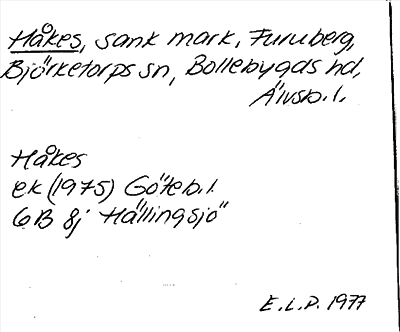 Håkes, sank mark, Furuberg,
Björketorps sn, Bollebygds hd,
Älvsb. l.
Håkes
ek (1975) Göteb. l.
6B 8j Hällingsjö
E.L.D. 1977